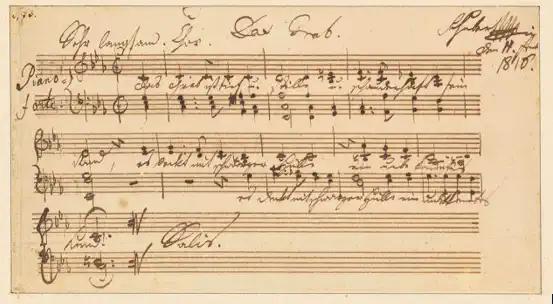 Sehr langsam. Chor. Das Grab.
den 11.
1816.
Piano
forte
Das Grab ist tief u. stille u. schauderhaft sein
Rand, es deckt mit schwarzer Hülle ein unbekanntes
es deckt mit schwarzer Hülle ein unbekanntes
Land. Salis.